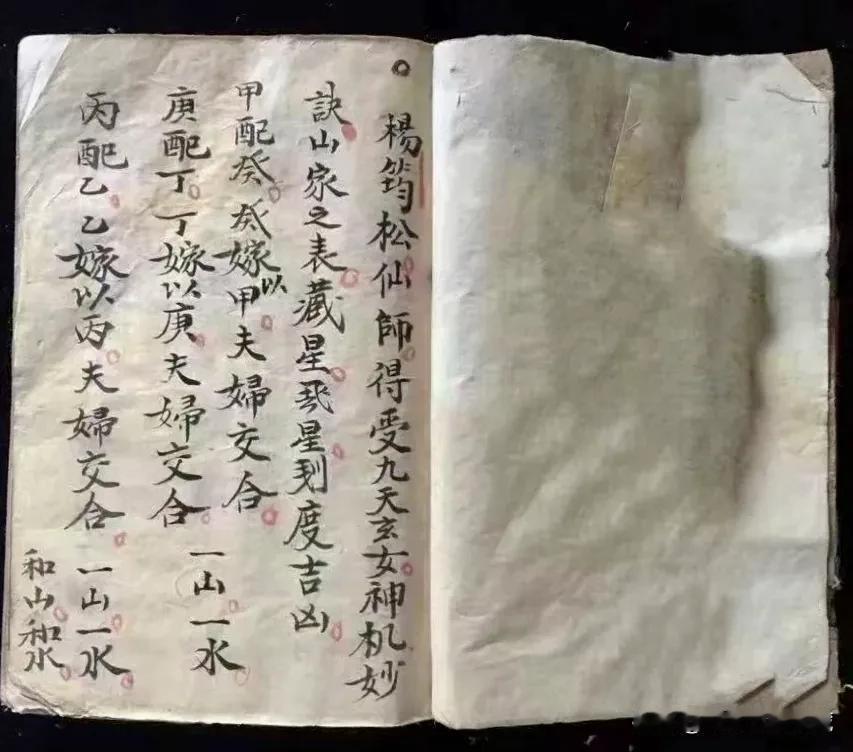 楊筠松仙師得受九天玄女神机妙
訣山家之表藏星飛星到度吉凶
甲配癸癸嫁以甲夫婦交合
一山一水
庚配丁丁嫁以庚夫婦交合
丙配乙乙嫁以丙夫婦交合
一山一水
和山和水